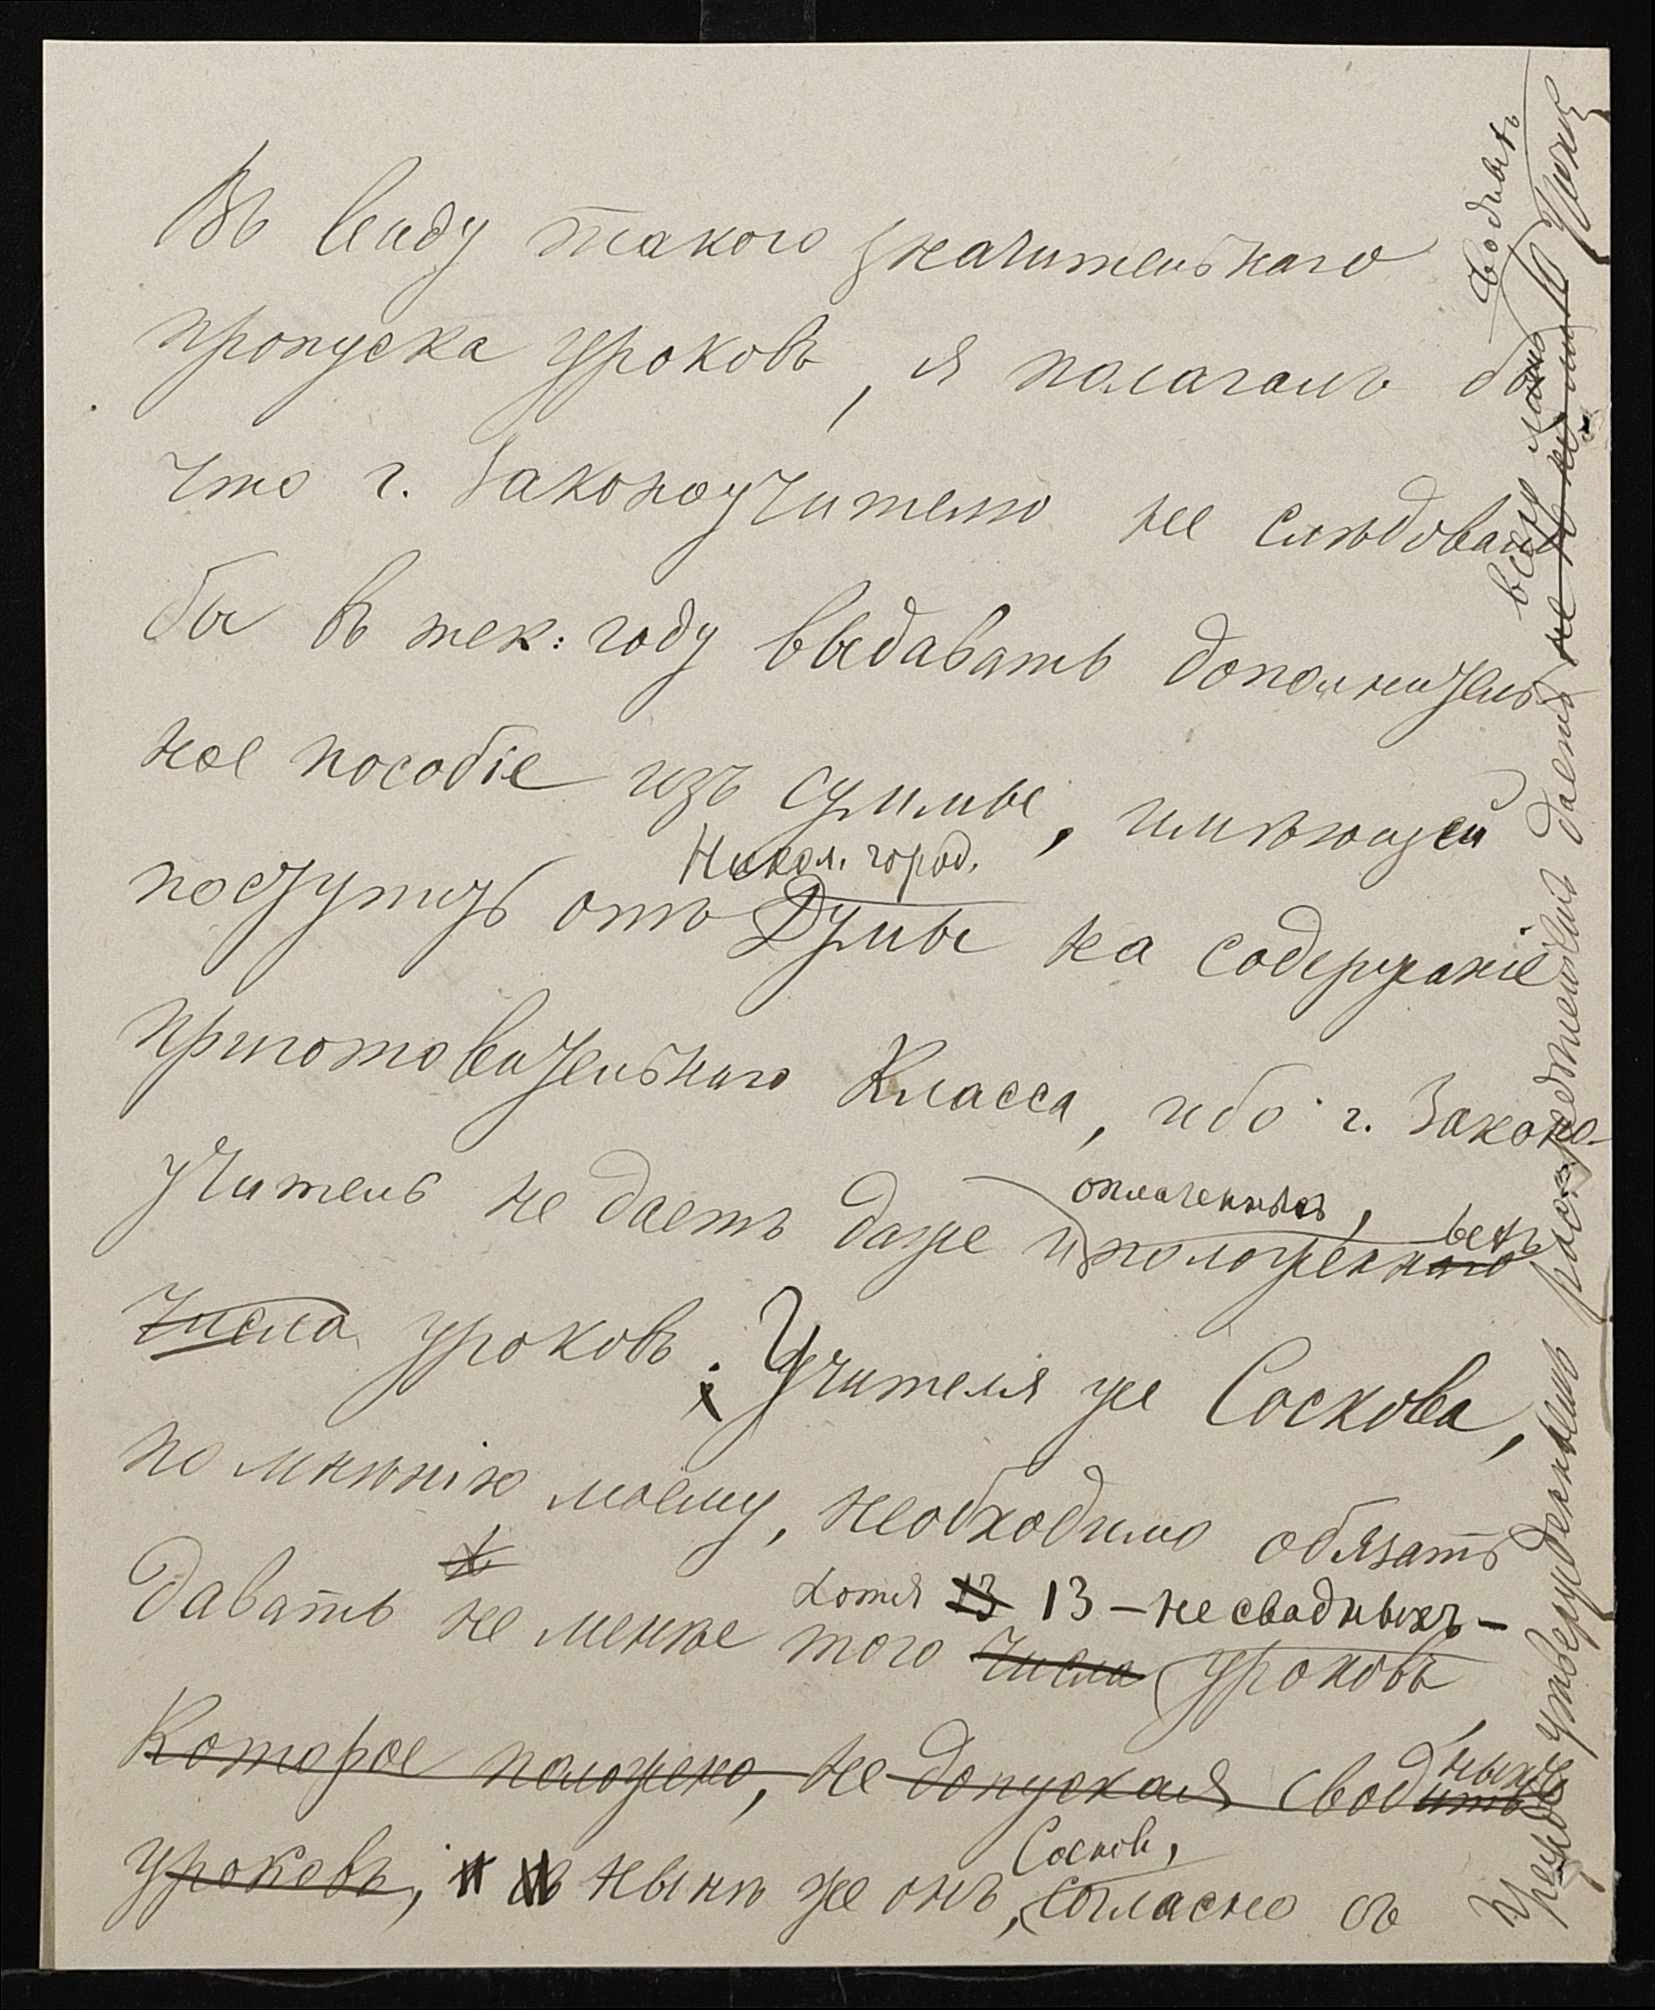 Въ виду такого значительнаго
пропуска уроковъ, я полагалъ бы
что г. Законоучителю не слѣдовало
бы въ тек: году выдавать дополнитель
ное пособіе изъ суммы, имѣющей
Никол. город.
поступить отъ Думы на содержаніе
приготовительнаго Класса, ибо г. Законо-
оплаченныхъ,
учитель не даетъ даже и положеннаго
числа уроковъ. Учителя же Соскова,
по мнѣнію моему, необходимо обязать
хотя 13 13 – не сводныхъ –
давать не менѣе того числа уроковъ,
Которое положено, не допуская сводныхъ
уроковъ, и нынѣ же онъ, Сосковъ, согласно съ
утвержденнымъ даетъ не
всего лишь
сводныхъ